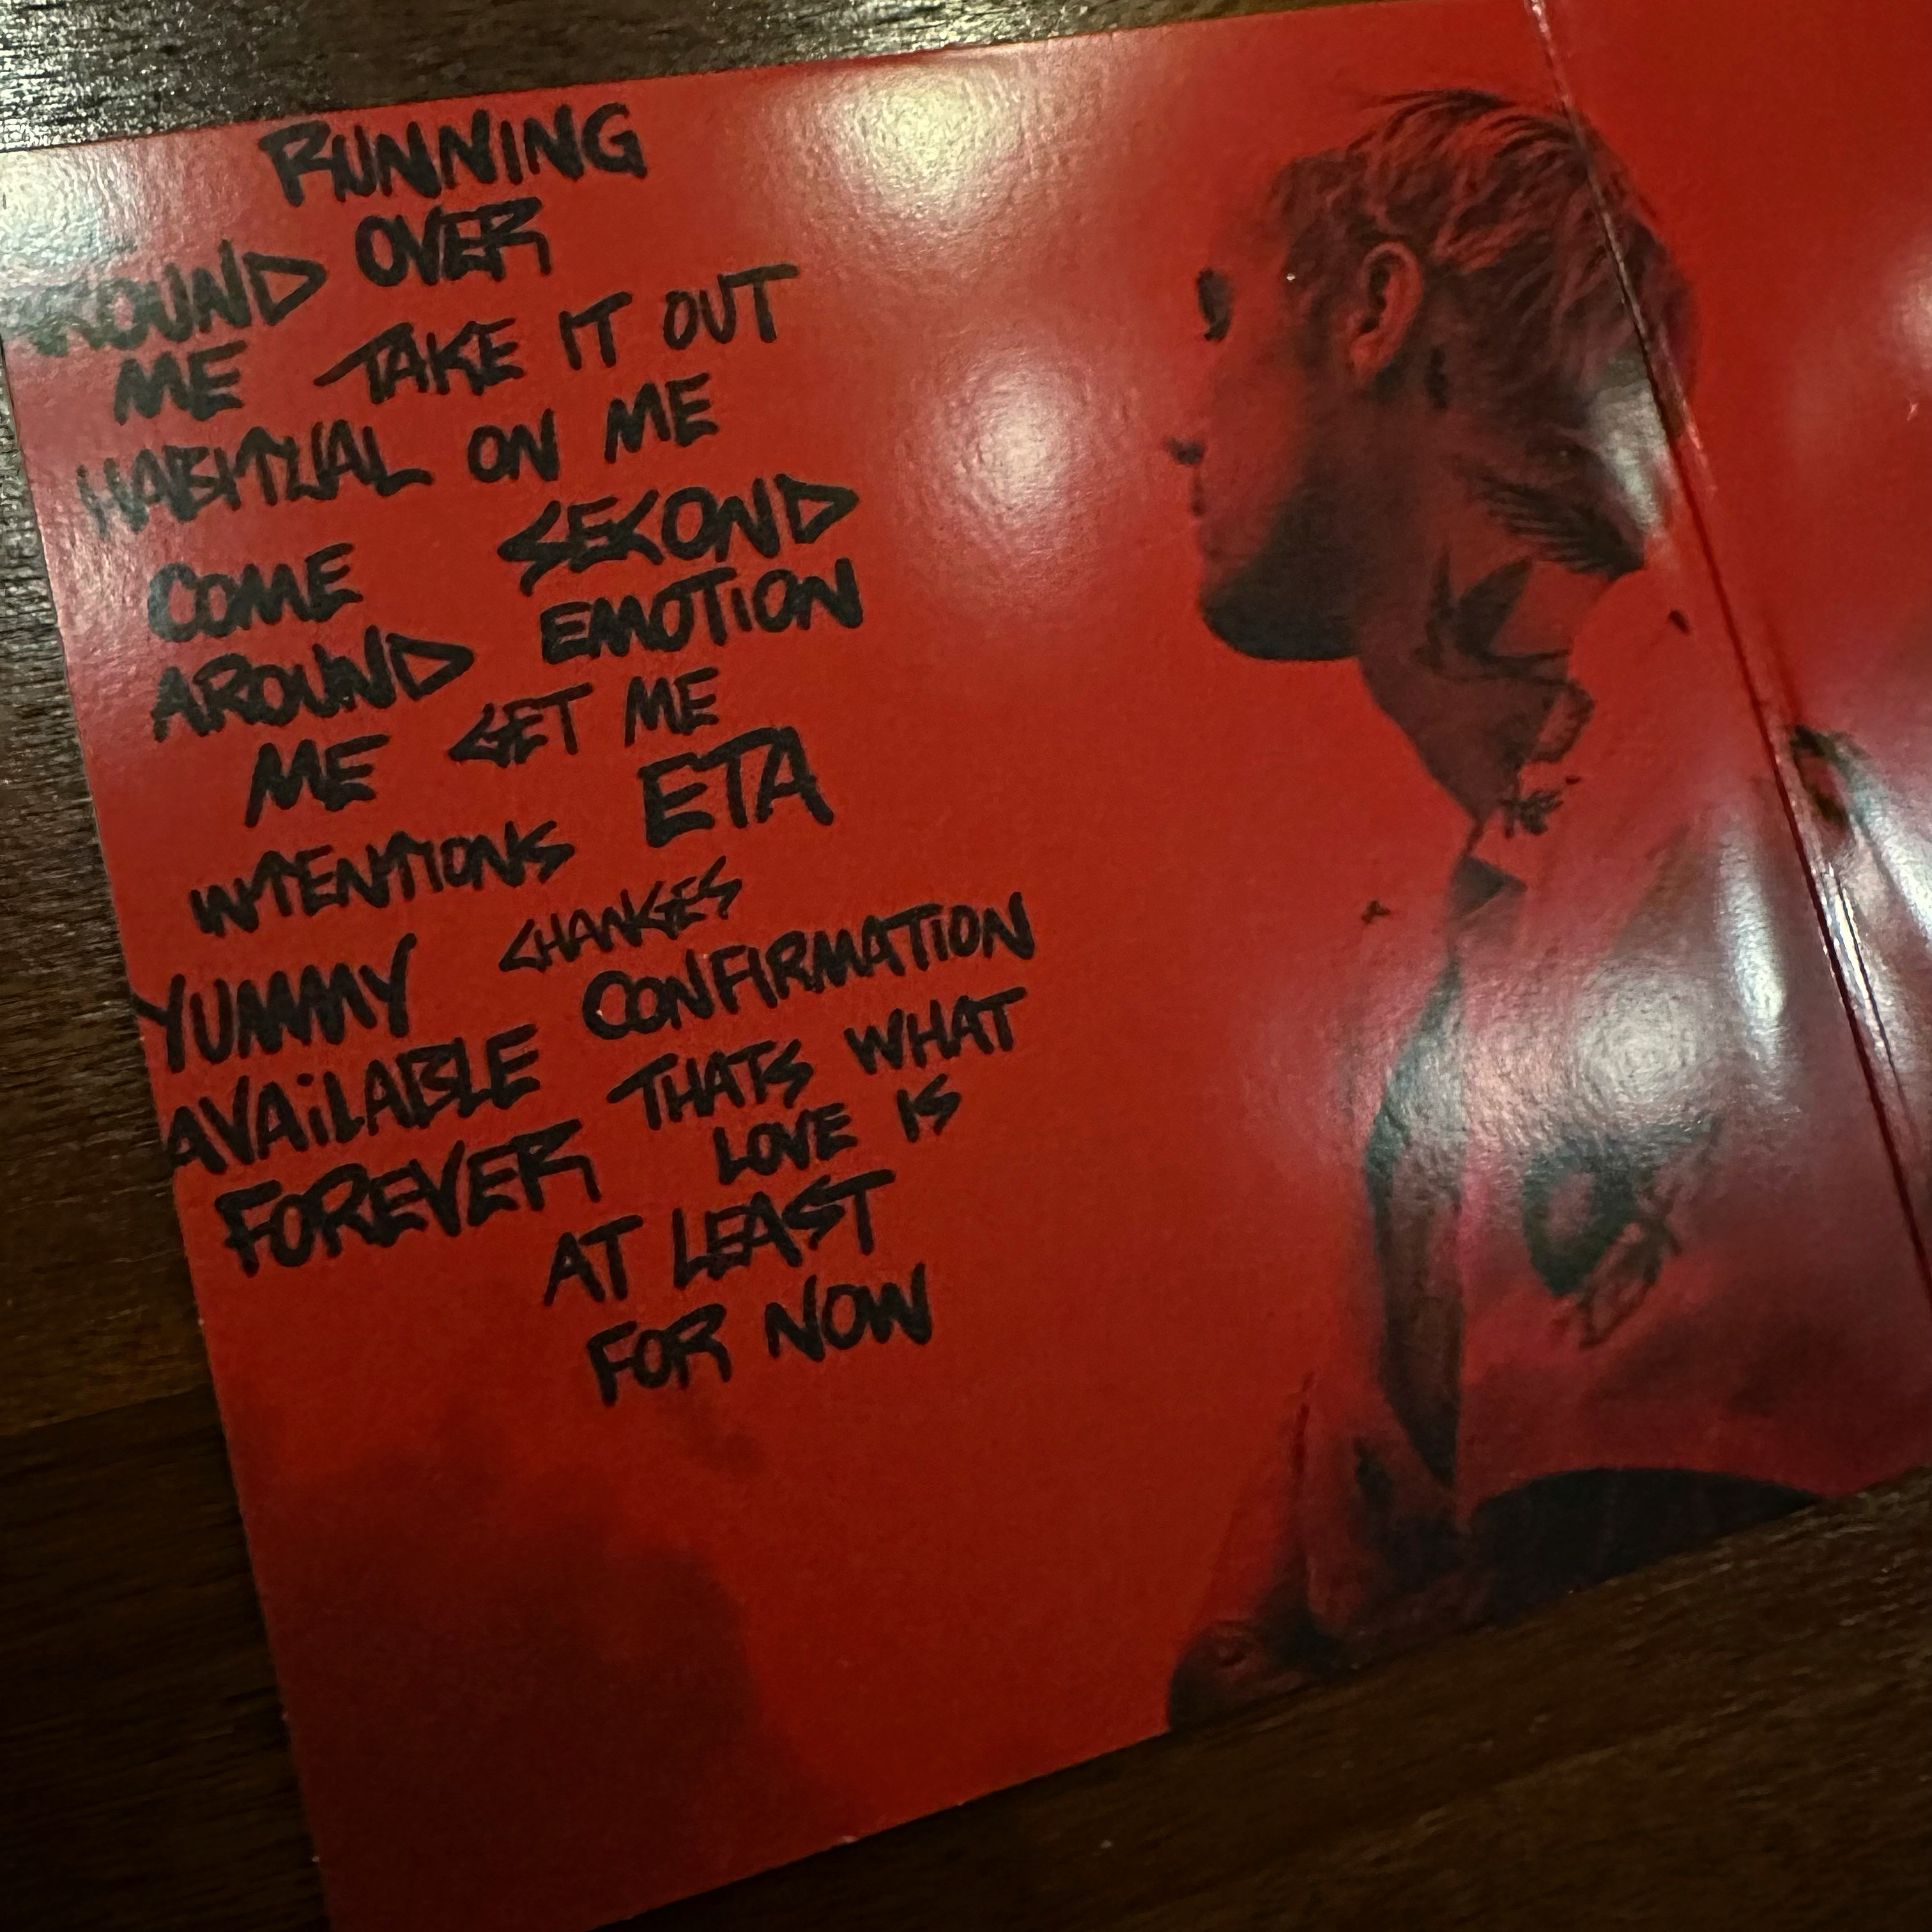 RUNNING
OVER
AROUND
ME TAKE IT OUT
HABITUAL ON ME
COME SECOND
AROUND EMOTION
ME GET ME
INTENTIONS ETA
YUMMY CHANGES
AVAiLABLE CONFIRMATION
FOREVER THATS WHAT
LOVE IS
AT LEAST
FOR NOW